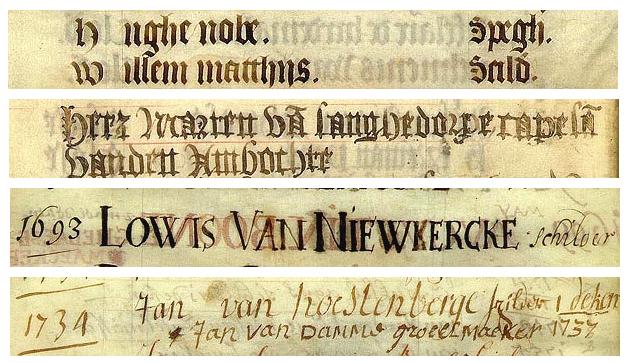 H ughe nobe. spegh.
W illem matthijs. Scild.
Heer Marten vā langhedorpe capelā
Vanden Ambochte
1693 LOWIS VAN NIEWKERCKE schilder
1734 Jan van hoestenberge schilder 1 deken
Jan VAN DAMME groeelmaeker 1737